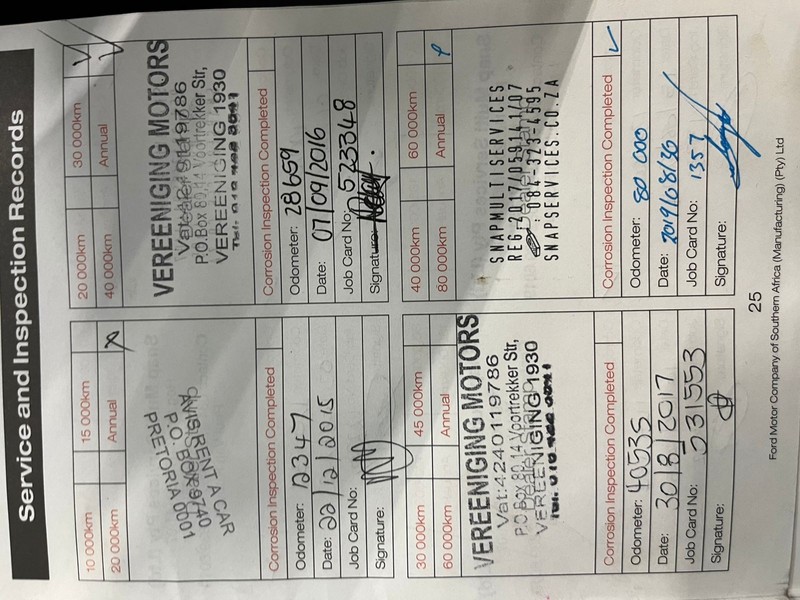 Service and Inspection Records
10 000km 15 000km
20 000km Annual
AVIS RENT A CAR
P.O. BOX
PRETORIA 0001
Corrosion Inspection Completed
Odometer: 12347
Date: 22/12/2015
Job Card No:
Signature:
20 000km 30 000km
40 000km Annual
VEREENIGING MOTORS
P.O.Box 80,14 Voortrekker Str,
VEREENIGING 1930
Corrosion Inspection Completed
Odometer: 28659
Date: 07/09/2016
Job Card No: 523348
Signature:
30 000km 45 000km
60 000km Annual
VEREENIGING MOTORS
Vat:4240119786
P.O.Box 80,14 Voortrekker Str,
VEREENIGING 1930
Corrosion Inspection Completed
Odometer: 40535
Date: 30/8/2017
Job Card No: 531553
Signature:
40 000km 60 000km
80 000km Annual
SNAPMULTISERVICES
REG:2017/059141/07
: 084-373-4595
SNAPSERVICES.CO.ZA
Corrosion Inspection Completed
Odometer: 80 000
Date: 2019/08/30
Job Card No: 1357
Signature:
25
Ford Motor Company of Southern Africa (Manufacturing) (Pty) Ltd